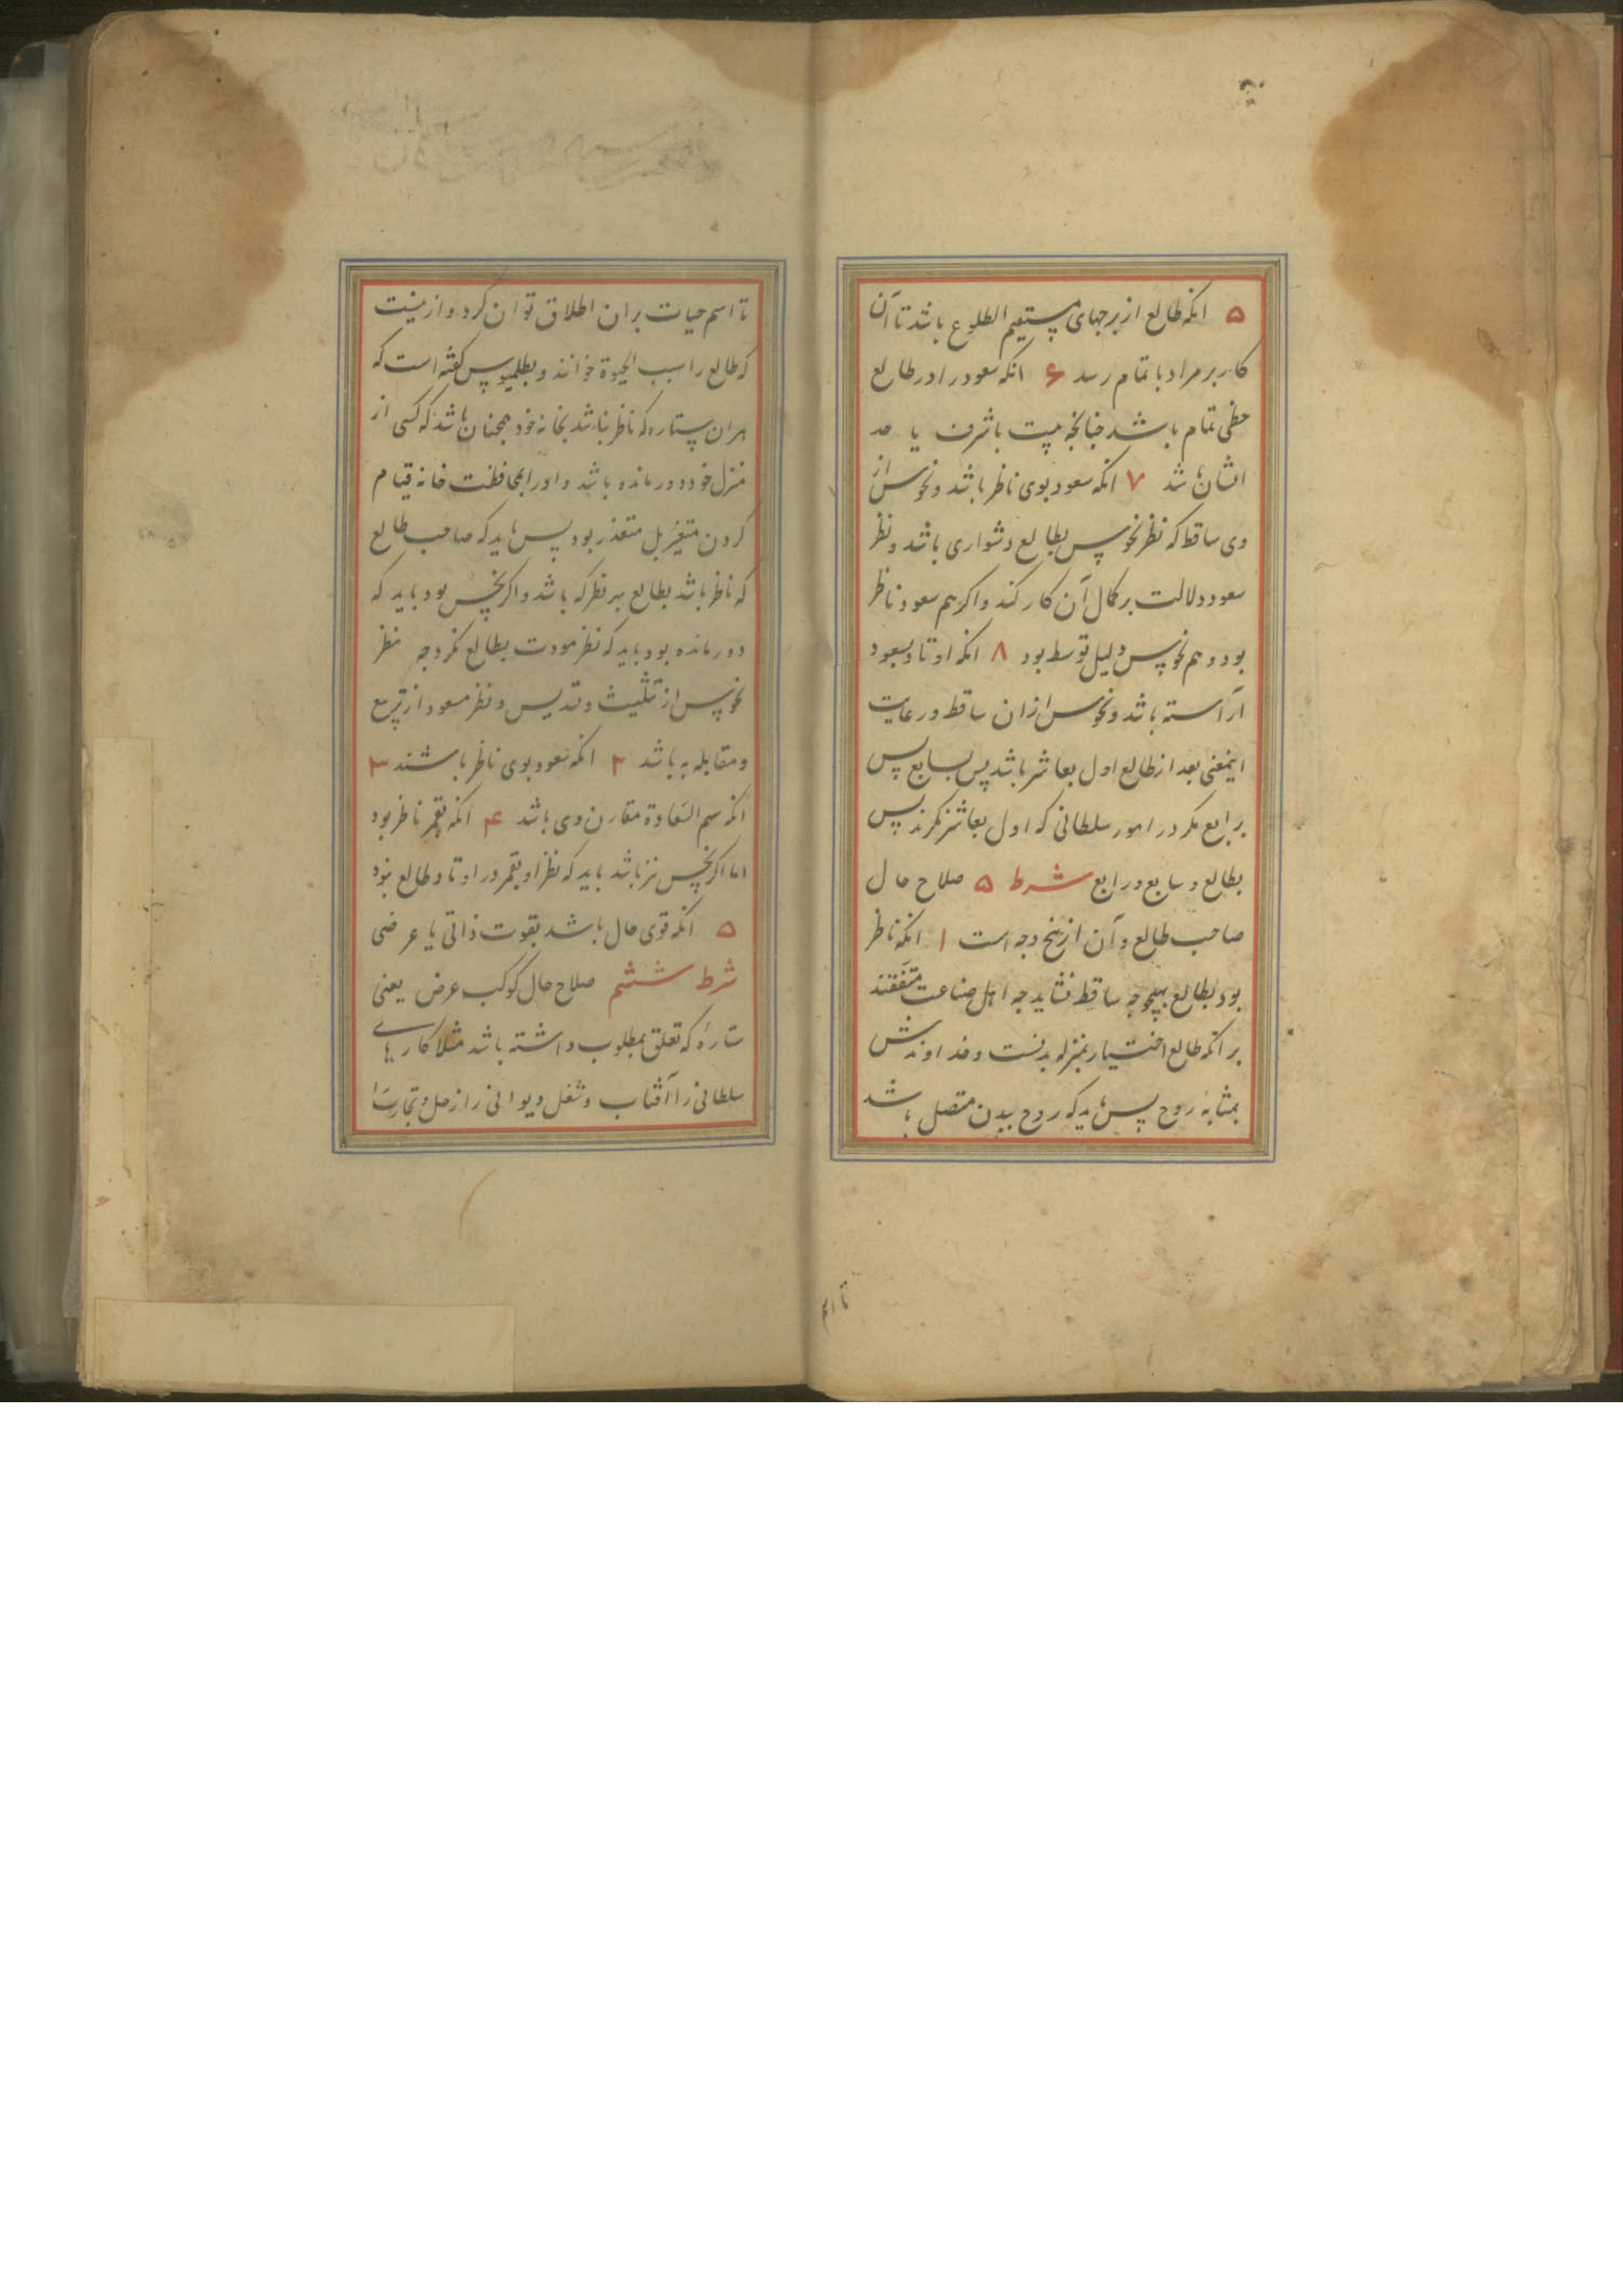 ۵ انکه طالع از برجهای مستقیم الطلوع باشد تا آن
کار بر مراد باتمام رسد ۶ انکه سعود را در طالع
حظی تمام باشد چنانچه بیت یا شرف یا حد
ایشان باشد ۷ انکه سعود بوی ناظر باشد و نحوس از
وی ساقط که نظر نحوس بطالع دشواری باشد و نظر
سعود دلالت بر کمال آن کار کند و اکر هم سعود ناظر
بود و هم نحوس دلیل توسط بود ۸ انکه اوتاد بسعود
آراسته باشد و نحوس از ان ساقط و رعایت
اینمعنی بعد از طالع اول بعاشر باشد پس بسابع پس
برابع مکر در امور سلطانی که اول بعاشر نکرند پس
بطالع و سابع و رابع شرط ۵ صلاح حال
صاحب طالع و آن از پنج وجه است ۱ انکه ناظر
بود بطالع بهیچوجه ساقط نشاید چه اهل صناعت متفقند
بر انکه طالع اختیار بمنزله بدنست و خداوندش
بمثابه روح پس باید که روح ببدن متصل باشد
تا اسم
تا اسم حیات بران اطلاق توان کرد و ازینست
که طالع را سبب الحیوة خوانند و بطلمیوس کفته است که
هران ستاره که ناظر نباشد بخانه خود همچنان باشد که کسی از
منزل خود دور مانده باشد و او را بمحافظت خانه قیام
کردن متغیر بل متعذر بود پس باید که صاحب طالع
که ناظر باشد بطالع بهر نظر که باشد و اکر نحس بود باید که
دور مانده بود باید که نظر مودت بطالع نکرد چه نظر
نحوس از تثلیث و تسدیس و نظر سعود از تربیع
و مقابله به باشد ۲ انکه سعود بوی ناظر باشند ۳
انکه سهم السعادة مقارن وی باشد ۴ انکه بقمر ناظر بود
اما اکر نحس نیز باشد باید که نظر او بقمر در اوتاد طالع نبود
۵ انکه قوی حال باشد بقوت ذاتی یا عرضی
شرط ششم صلاح حال کوکب عرض یعنی
ستارهٔ که تعلق بمطلوب داشته باشد مثلا کارهای
سلطانی را آفتاب و شغل دیوانی را زحل و تجارت را